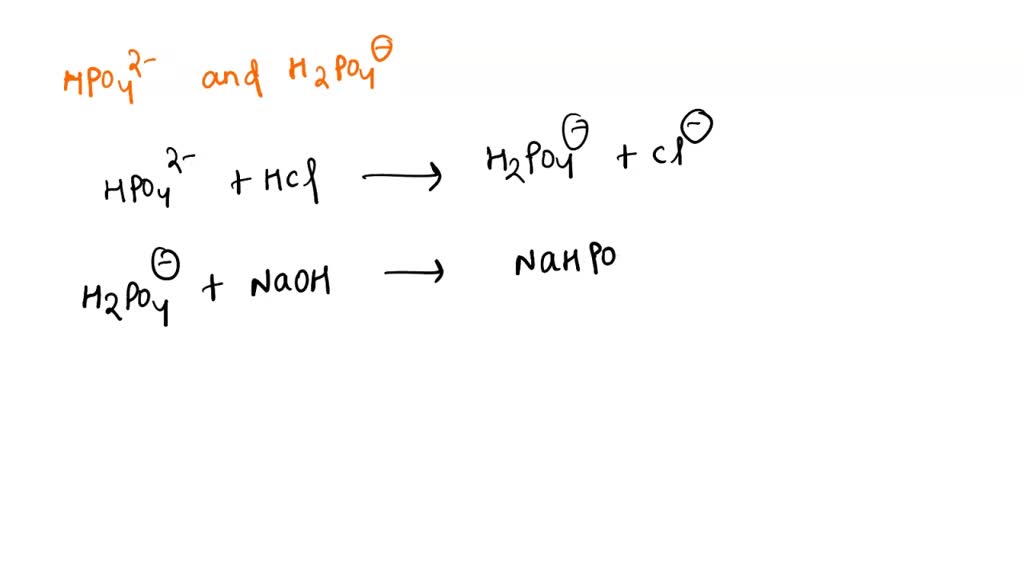 HPO₄²⁻ and H₂PO₄⊖
HPO₄²⁻ + HCl ⟶ H₂PO₄⊖ + Cl⊖
H₂PO₄⊖ + NaOH ⟶ NaHPO